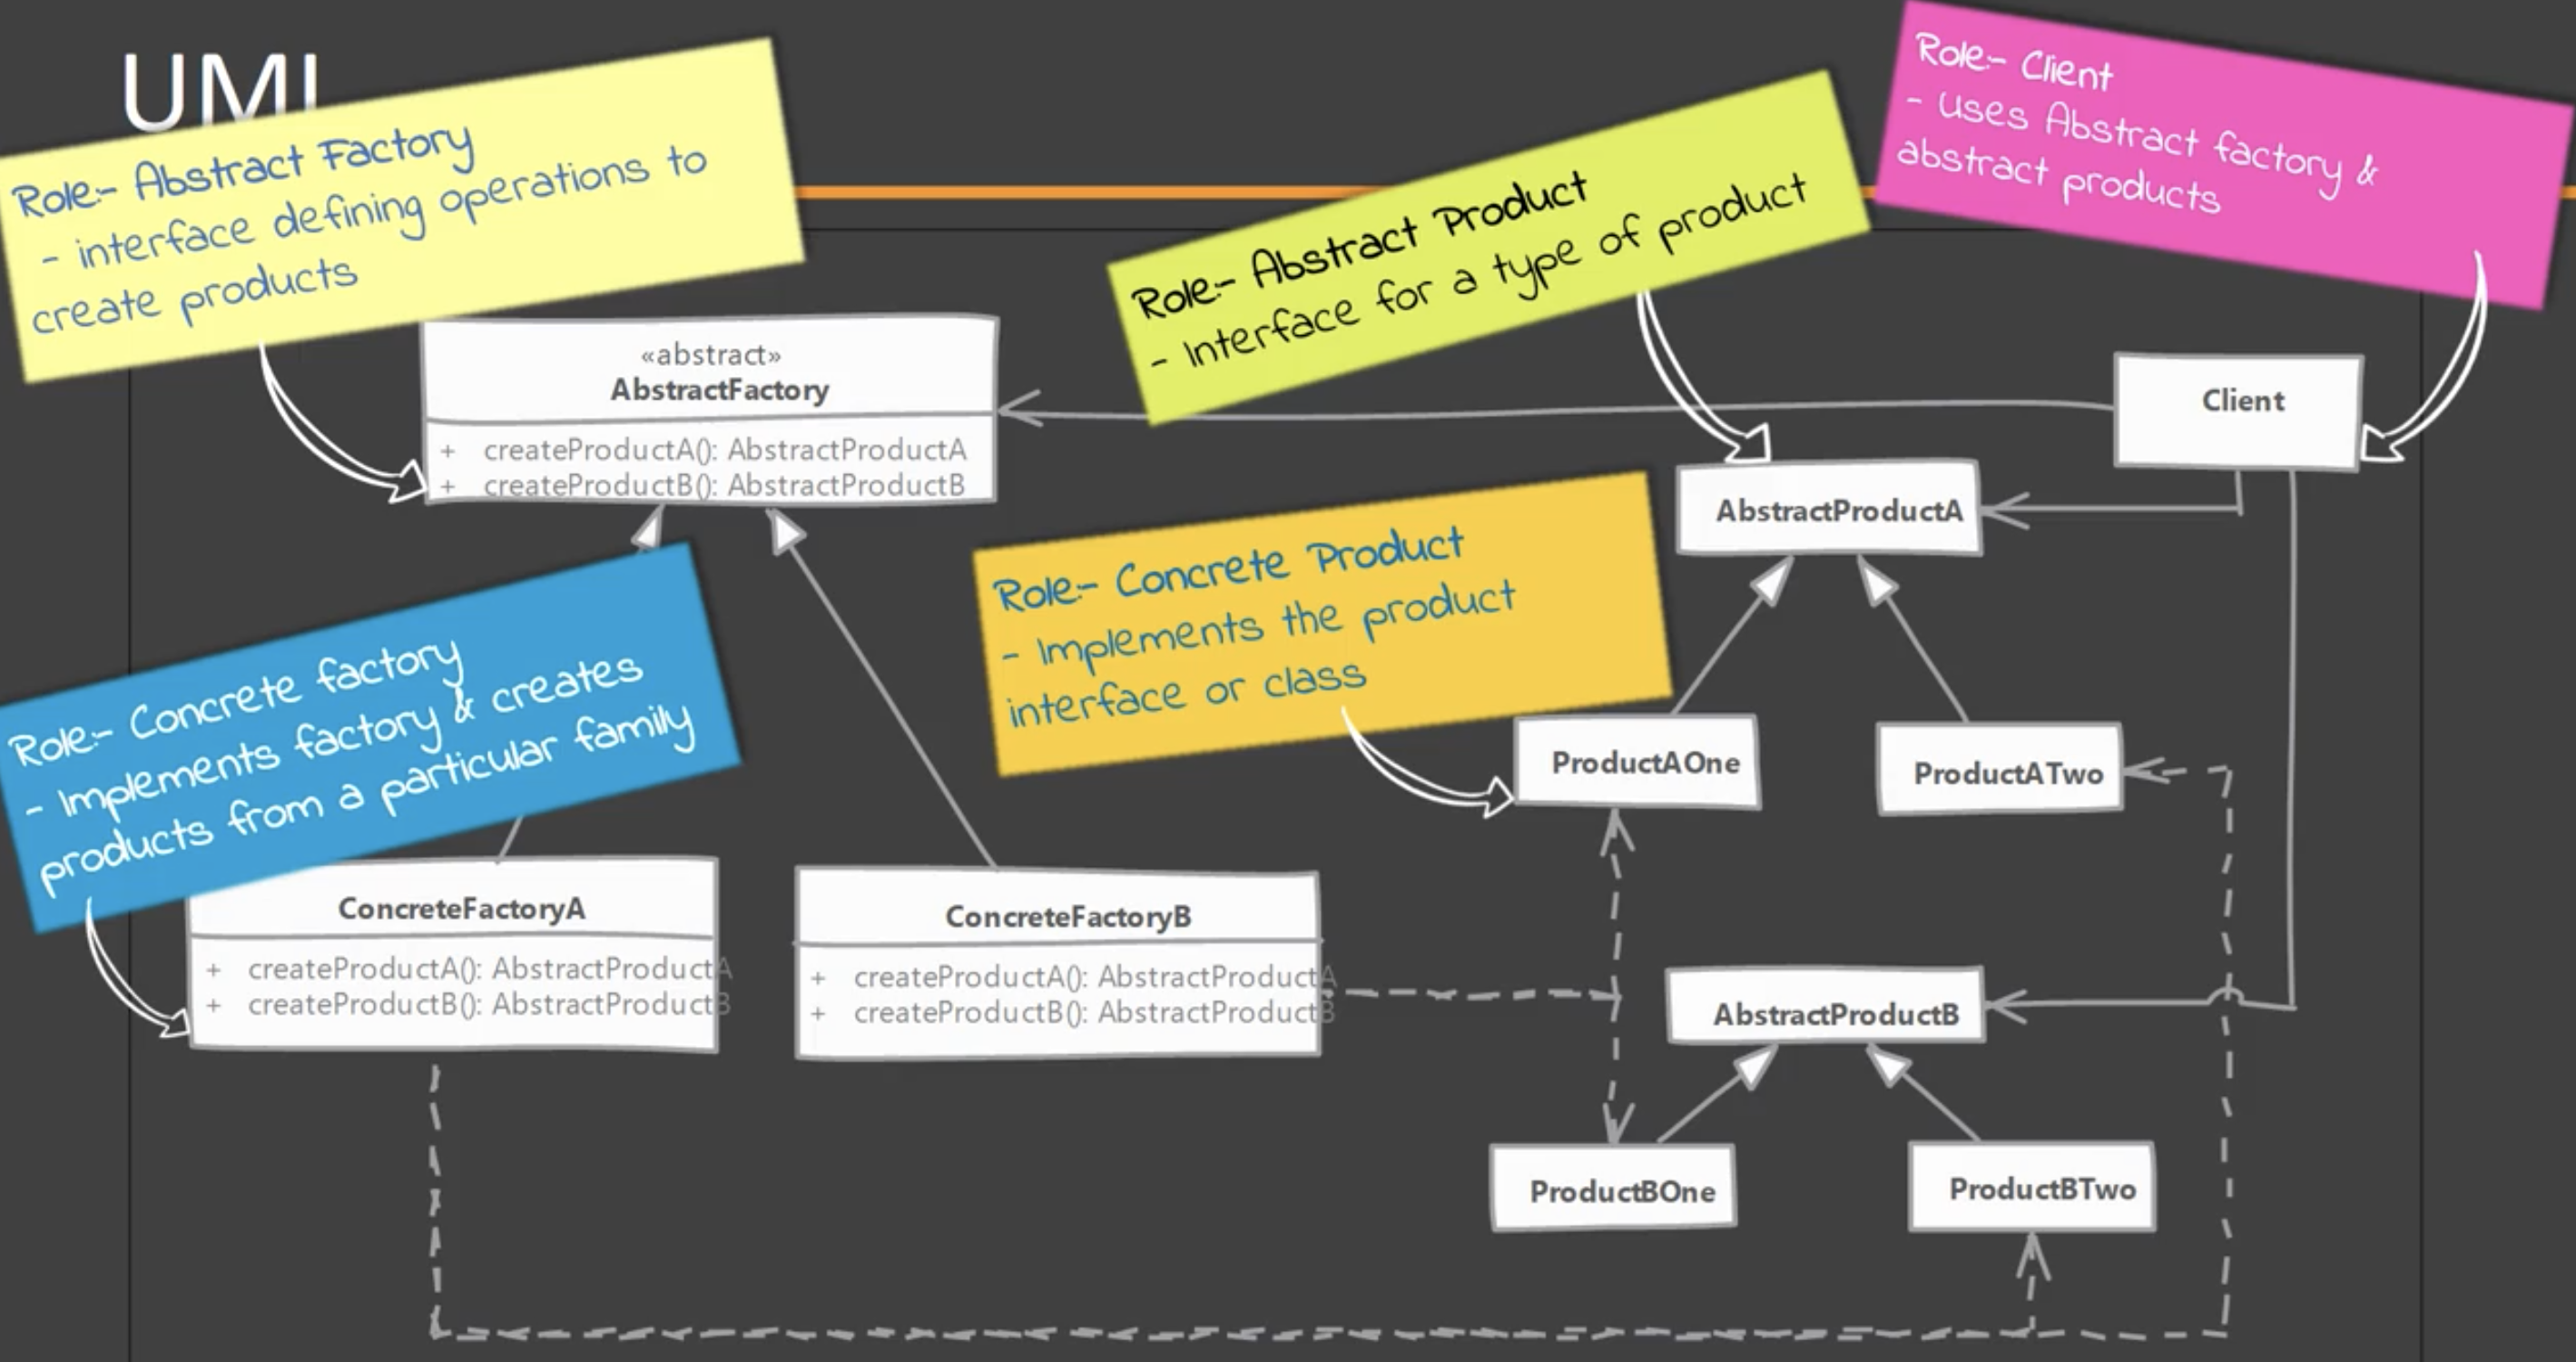 UML
Role:- Abstract Factory
- interface defining operations to
create products
Role:- Abstract Product
- Interface for a type of product
Role:- Client
- uses Abstract factory &
abstract products
«abstract»
AbstractFactory
+ createProductA(): AbstractProductA
+ createProductB(): AbstractProductB
Client
AbstractProductA
Role:- Concrete Product
- Implements the product
interface or class
Role:- Concrete factory
- Implements factory & creates
products from a particular family
ProductAOne
ProductATwo
ConcreteFactoryA
+ createProductA(): AbstractProductA
+ createProductB(): AbstractProductB
ConcreteFactoryB
+ createProductA(): AbstractProductA
+ createProductB(): AbstractProductB
AbstractProductB
ProductBOne
ProductBTwo